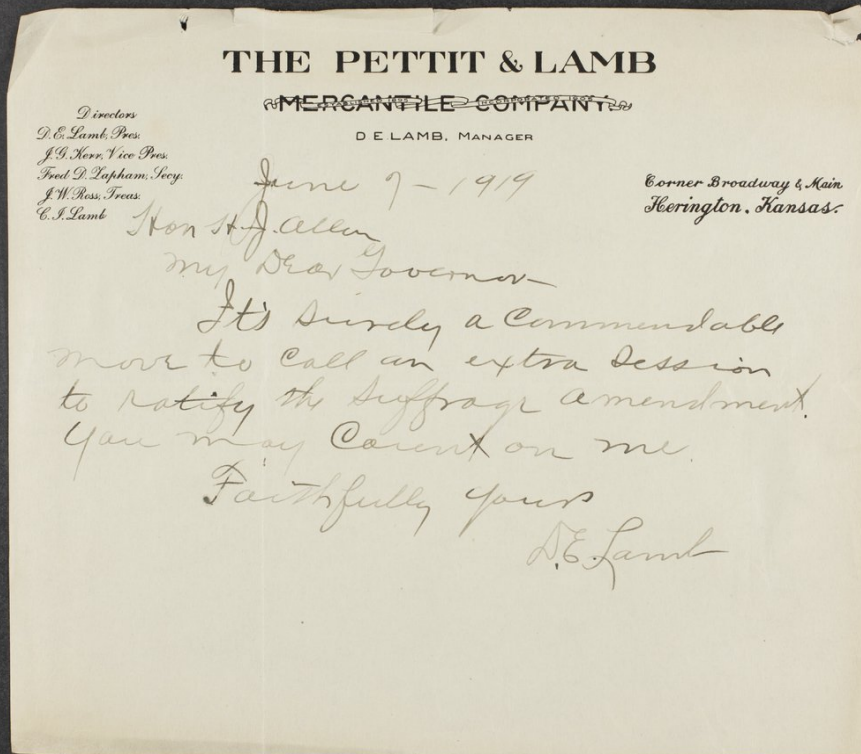 THE PETTIT & LAMB
MERCANTILE COMPANY.
D E LAMB, MANAGER
Directors
D. E. Lamb, Pres.
J. G. Kerr, Vice Pres.
Fred D. Lapham, Secy.
J. W. Ross, Treas.
C. I. Lamb
Corner Broadway & Main
Herington, Kansas.
June 7 - 1919
Hon H. J. Allen
My Dear Governor
It's surely a Commendable
move to Call an extra Session
to ratify the Suffrage Amendment.
You may Count on me.
Faithfully yours
D. E. Lamb